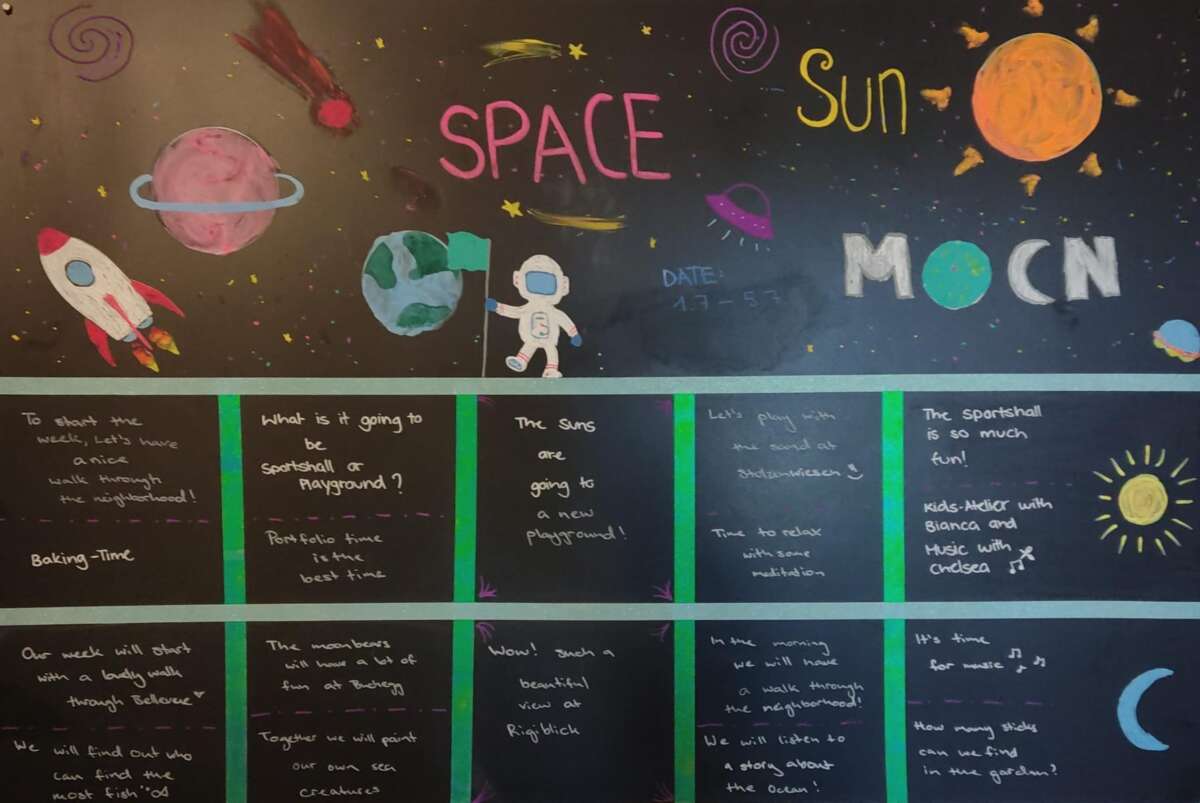 SPACE
Sun
MOON
DATE:
1.7 - 5.7
To start the
week, Let's have
a nice
walk through
the neighborhood!
Baking-Time
What is it going to
be
Sportshall or
Playground?
Portfolio time
is the
best time
The suns
are
going to
a new
playground!
Let's play with
the sand at
Stolzenwiesen
Time to relax
with some
meditation
The sportshall
is so much
fun!
Kids-Atelier with
Bianca and
Music with
Chelsea
Our week will start
with a lovely walk
through Bellevue
We will find out who
can find the
most fish
The moonbears
will have a lot of
fun at Buchegg
Together we will paint
our own sea
creatures
Wow! Such a
beautiful
view at
Rigiblick
In the morning
we will have
a walk through
the neighborhood!
We will listen to
a story about
the Ocean!
It's time
for music
How many sticks
can we find
in the garden?